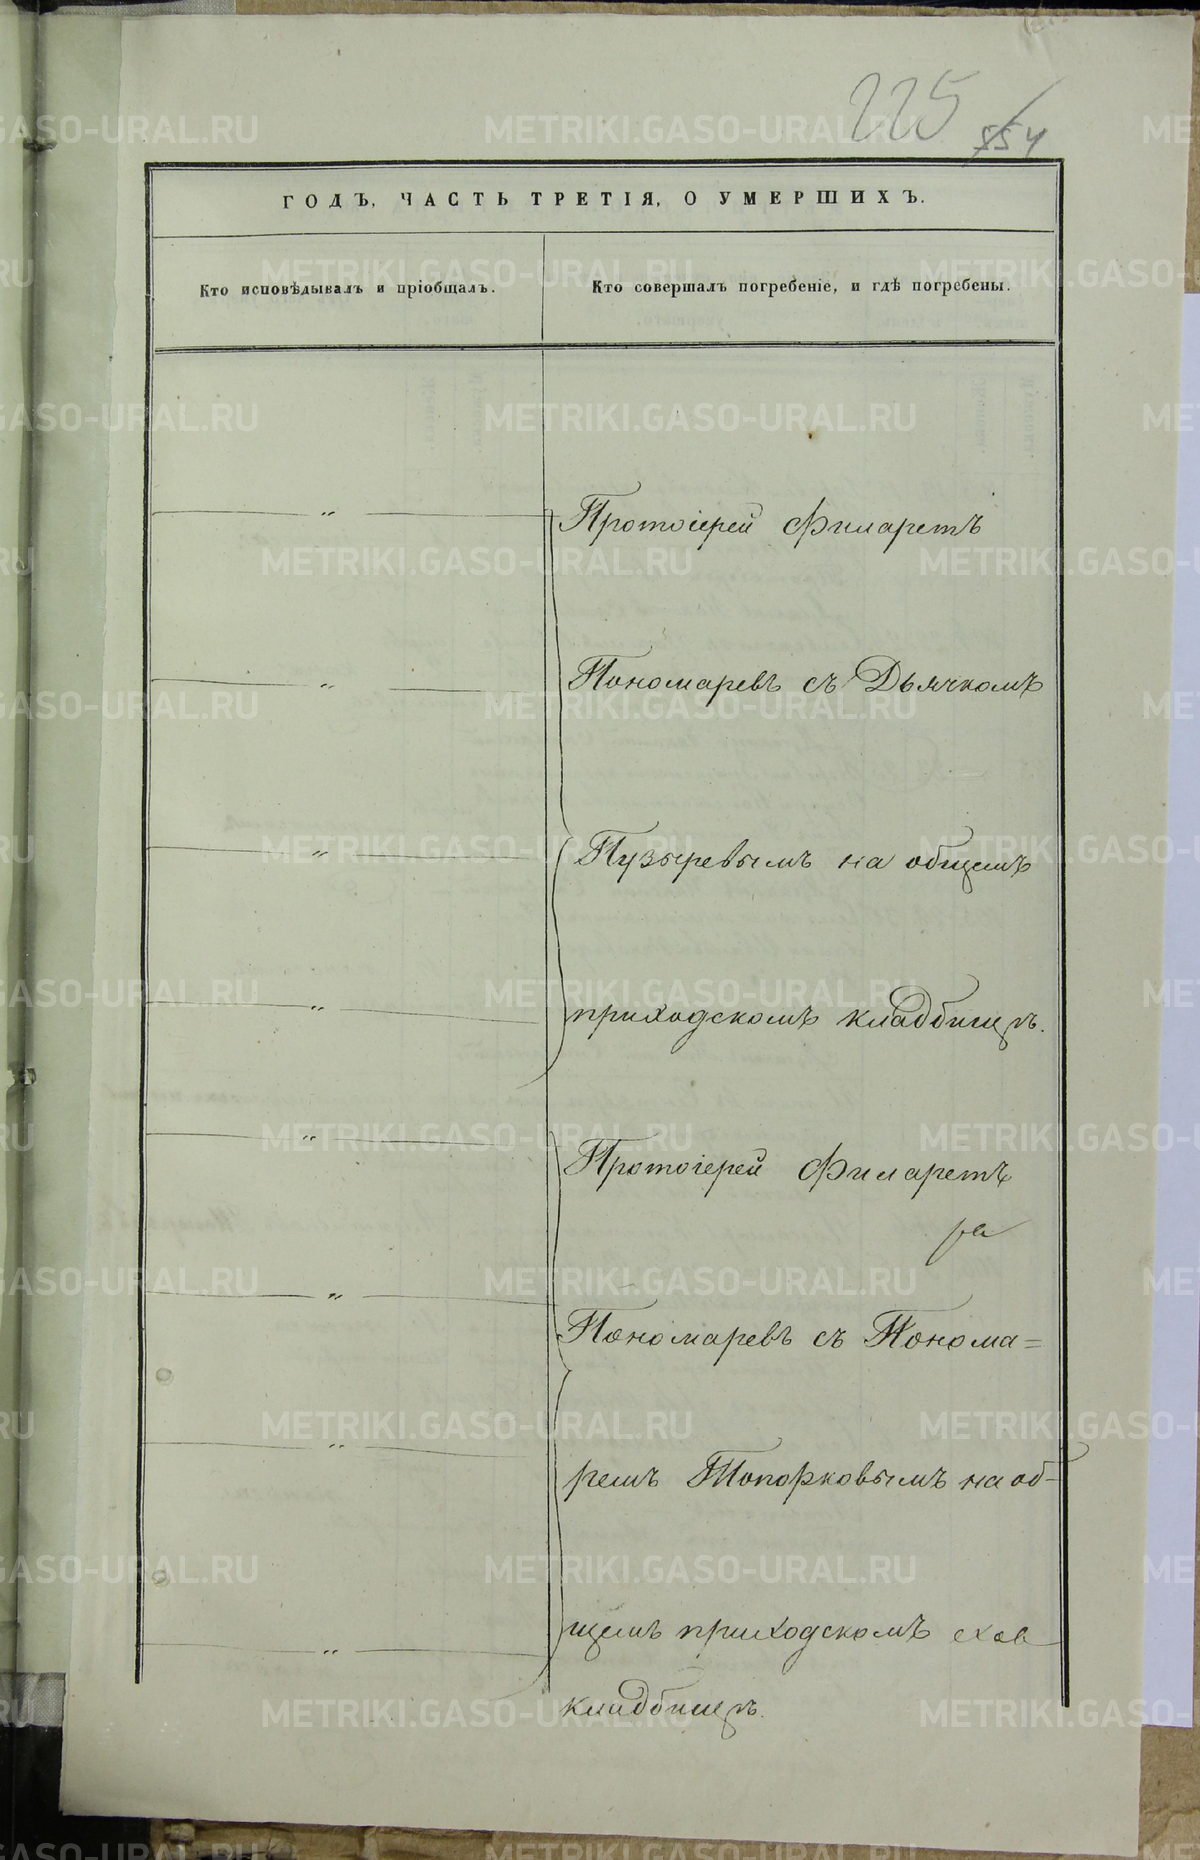 225
554
ГОДЪ, ЧАСТЬ ТРЕТІЯ, О УМЕРШИХЪ.
Кто исповѣдывалъ и пріобщалъ.
Кто совершалъ погребеніе, и гдѣ погребены.
Протоіерей Филаретъ
Пономаревъ съ Дьячкомъ
Пузыревымъ на общемъ
приходскомъ кладбищѣ.
Протоіерей Филаретъ
ра
Пономаревъ съ Понома=
ремъ Топорковымъ на об-
щемъ приходскомъ
кладбищѣ.
METRIKI.GASO-URAL.RU